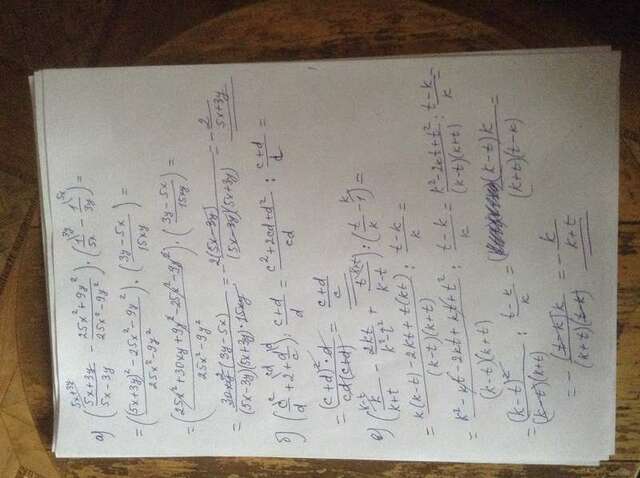 а) ((5x+3y)/(5x-3y) ^(5x+3y) - (25x²+9y²)/(25x²-9y²)) · (1/5x ^(3y) - 1/3y ^(5x)) =
= (((5x+3y)² - 25x² - 9y²)/(25x²-9y²)) · ((3y-5x)/15xy) =
= ((25x²+30xy+9y²-25x²-9y²)/(25x²-9y²)) · ((3y-5x)/15xy) =
= (30xy(3y-5x))/((5x-3y)(5x+3y)·15xy) = -(2(5x-3y))/((5x-3y)(5x+3y)) = -2/(5x+3y)
б) (c/d ^c + 2 ^(cd) + d/c ^d) : (c+d)/d = (c²+2cd+d²)/cd : (c+d)/d =
= ((c+d)²·d)/(cd(c+d)) = (c+d)/c
в) (k/(k+t) ^(k-t) - 2kt/(k²-t²) + t/(k-t) ^(k+t)) : (t/k - 1 ^k) =
= (k(k-t)-2kt+t(k+t))/((k-t)(k+t)) : (t-k)/k =
= (k²-kt-2kt+kt+t²)/((k-t)(k+t)) : (t-k)/k = (k²-2kt+t²)/((k-t)(k+t)) : (t-k)/k =
= (k-t)²/((k-t)(k+t)) : (t-k)/k = ((k-t)k)/((k+t)(t-k)) =
= -((t-k)k)/((k+t)(t-k)) = -k/(k+t)